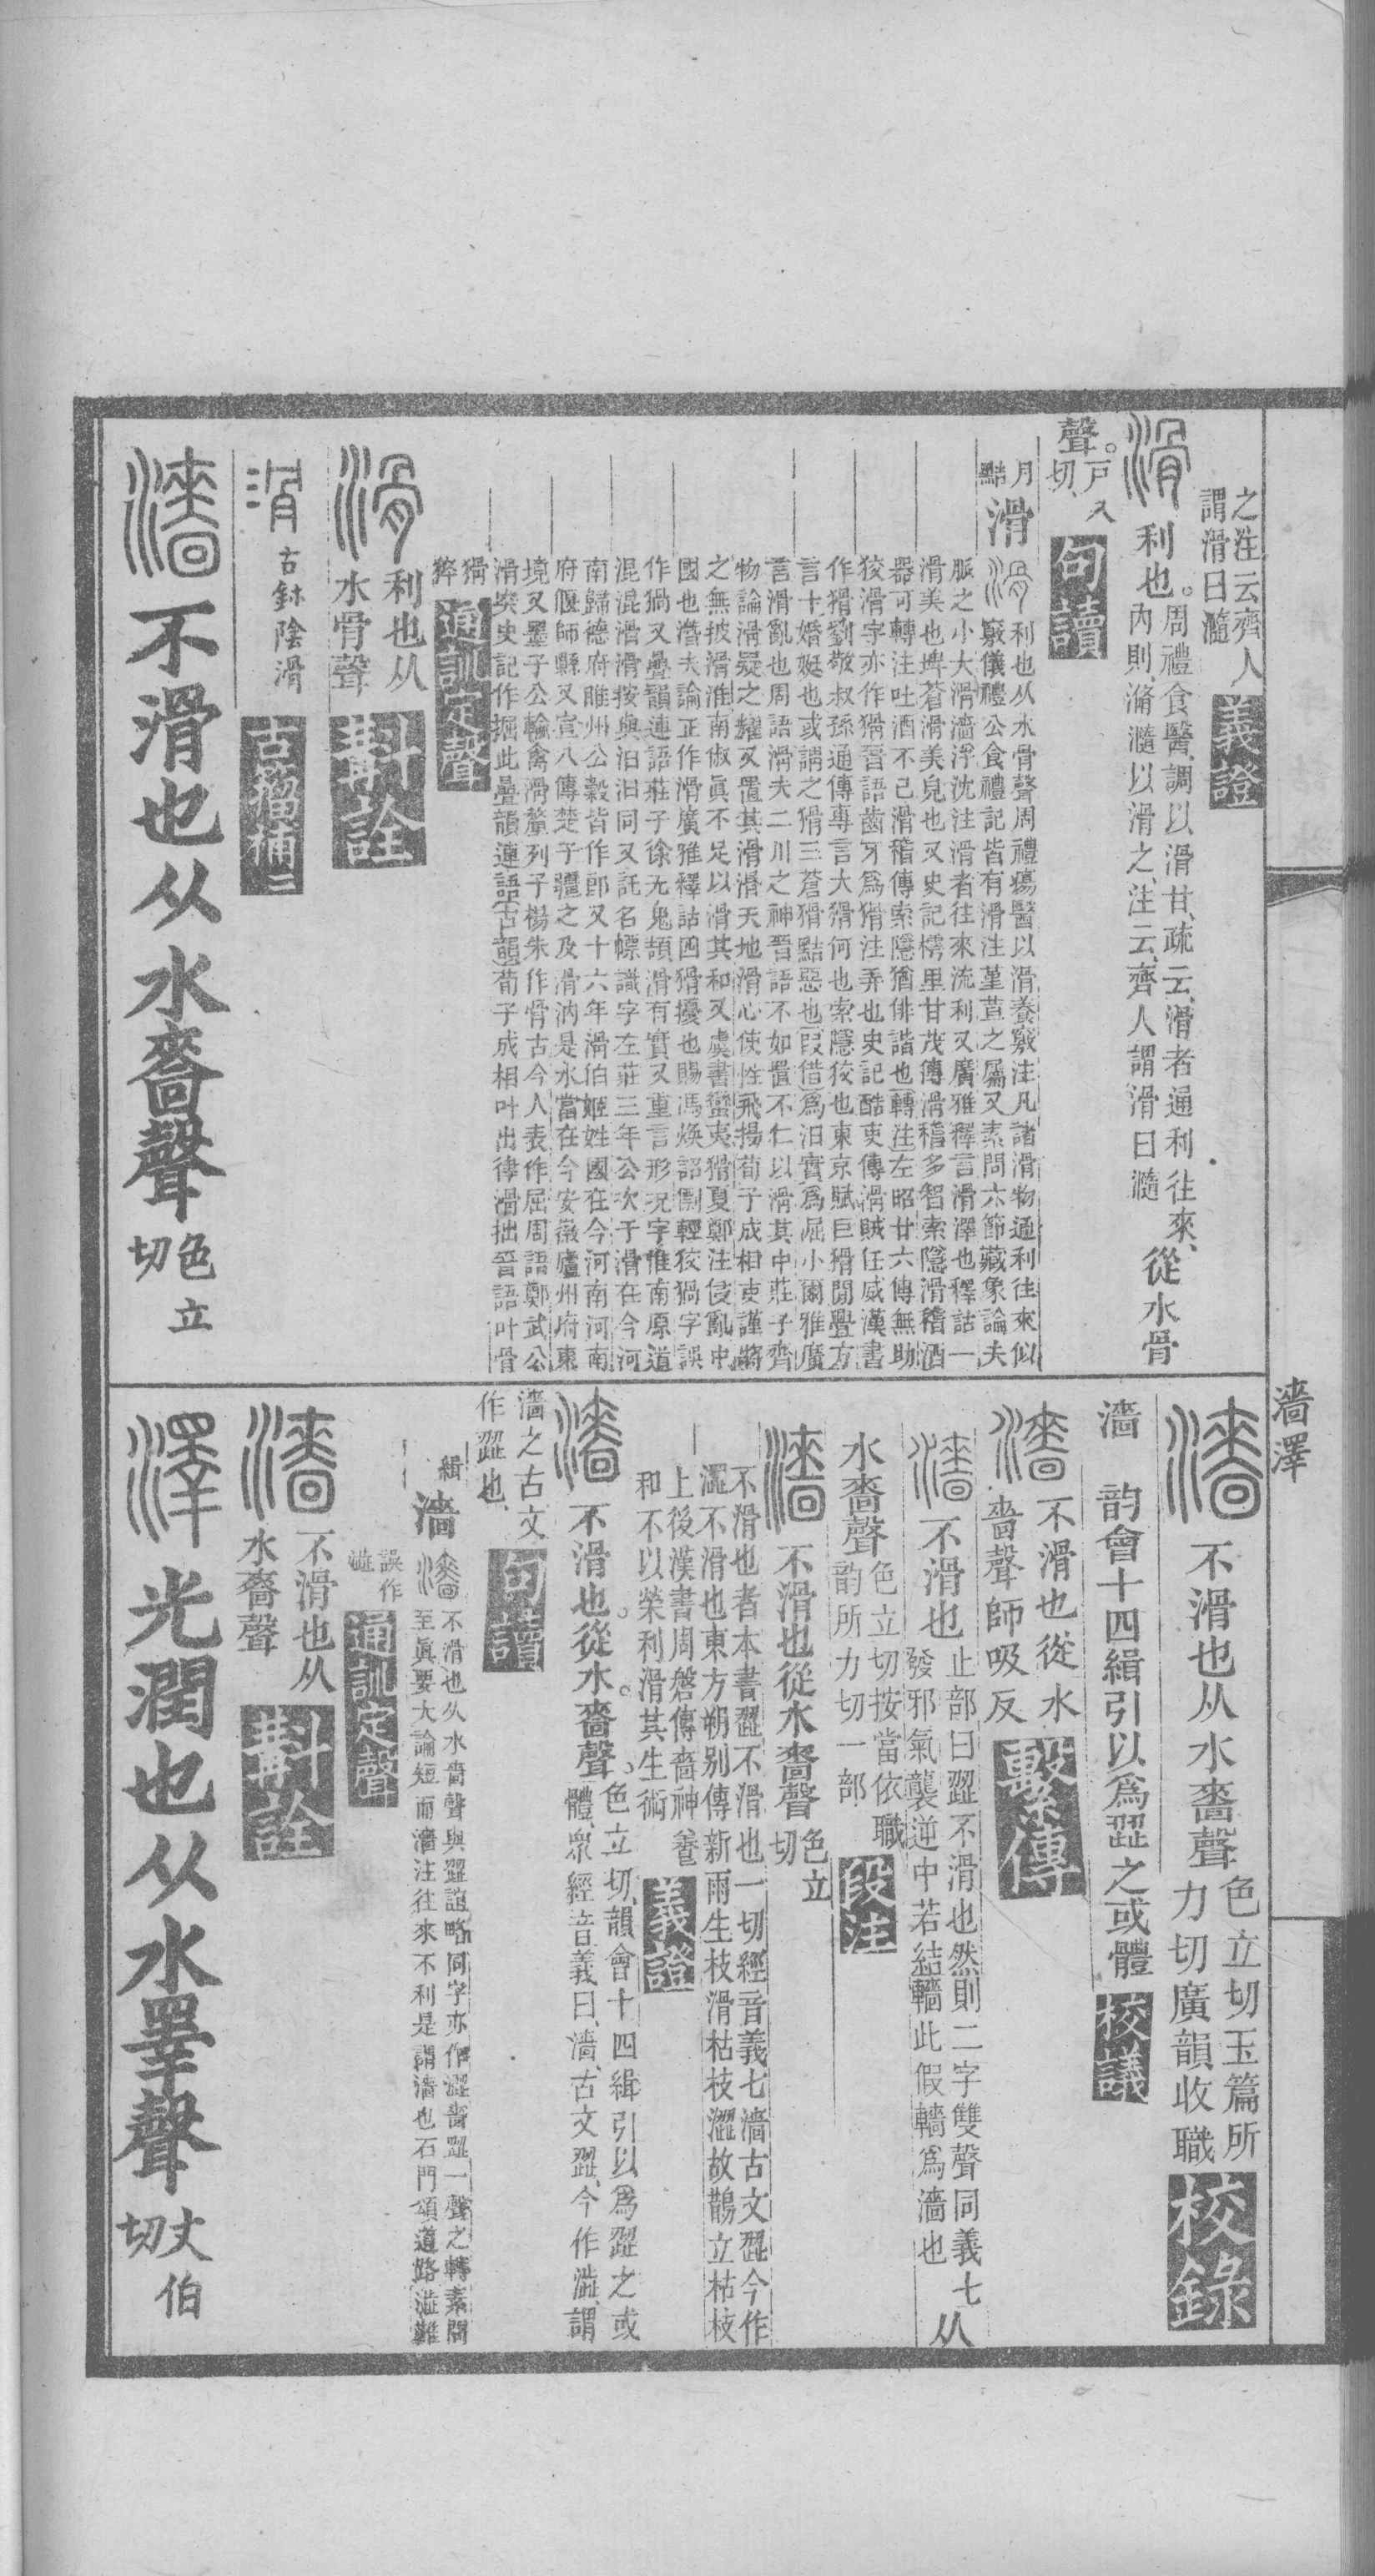 之注云齊人
謂滑曰瀡
義證
滑
利也。
周禮食醫、調以滑甘、疏云、滑者通利往來、
內則、滫瀡以滑之、注云、齊人謂滑曰瀡
從水骨
聲。
戶八
切、
句讀
月
黠
滑
滑
利也从水骨聲周禮瘍醫以滑養竅注凡諸滑物通利往來似
竅儀禮公食禮記皆有滑注堇荁之屬又素問六節藏象論夫
脈之小大滑濇浮沈注滑者往來流利又廣雅釋言滑澤也釋詁一
滑美也埤蒼滑美皃也又史記樗里甘茂傳滑稽多智索隱滑稽酒
器可轉注吐酒不已滑稽傳索隱猶俳諧也轉注左昭廿六傳無助
狡滑字亦作猾晉語齒牙爲猾注弄也史記酷吏傳滑賊任威漢書
作猾劉敬叔孫通傳專言大猾何也索隱狡也東京賦巨猾閒釁方
言十婚娗也或謂之猾三蒼猾黠惡也叚借爲汩實爲屈小爾雅廣
言滑亂也周語滑夫二川之神晉語不如置不仁以滑其中莊子齊
物論滑疑之耀又置其滑滑天地滑心使性飛揚荀子成相吏謹將
之無披滑淮南俶眞不足以滑其和又虞書蠻夷猾夏鄭注侵亂中
國也潛夫論正作滑廣雅釋詁四猾擾也賜馮煥詔剽輕狡猾字誤
作猾又疊韻連語莊子徐无鬼頡滑有實又重言形況字淮南原道
混混滑滑按與汩汩同又託名幖識字左莊三年公次于滑在今河
南歸德府睢州公穀皆作郎又十六年滑伯姬姓國在今河南河南
府偃師縣又宣八傳楚子疆之及滑汭是水當在今安徽廬州府東
境又墨子公輸禽滑釐列子楊朱作骨古今人表作屈周語鄭武公
滑突史記作掘此疊韻連語古韻荀子成相叶出律滑拙晉語叶骨
猾
猝
通訓定聲
滑
利也从
水骨聲
斠詮
滑
古鉥陰滑
古籀補二
濇
不滑也从水嗇聲
色立
切
濇
不滑也从水嗇聲
色立切玉篇所
力切廣韻收職
校錄
濇
韵會十四緝引以爲歰之或體
校議
濇
不滑也從水
嗇聲師吸反
繫傳
濇
不滑也
止部曰歰不滑也然則二字雙聲同義七
發邪氣襲逆中若結轖此假轖爲濇也
从
水嗇聲
色立切按當依職
韵所力切一部
段注
濇
不滑也從水嗇聲
色立
切
不滑也者本書歰不滑也一切經音義七濇古文歰今作
澀不滑也東方朔別傳新雨生枝滑枯枝澀故鵲立枯枝
上後漢書周磐傳嗇神養
和不以榮利滑其生術
義證
濇
不滑也。從水。嗇聲。
色立切、韻會十四緝引以爲歰之或
體、眾經音義曰、濇、古文歰、今作澁、謂
濇之古文
作歰也、
句讀
緝
濇
濇
不滑也从水嗇聲與歰誼略同字亦作澀嗇歰一聲之轉素問
至眞要大論短而濇注往來不利是謂濇也石門頌道路澁難
誤作
澁
通訓定聲
濇
不滑也从
水嗇聲
斠詮
澤
光潤也从水睪聲
丈伯
切
濇澤